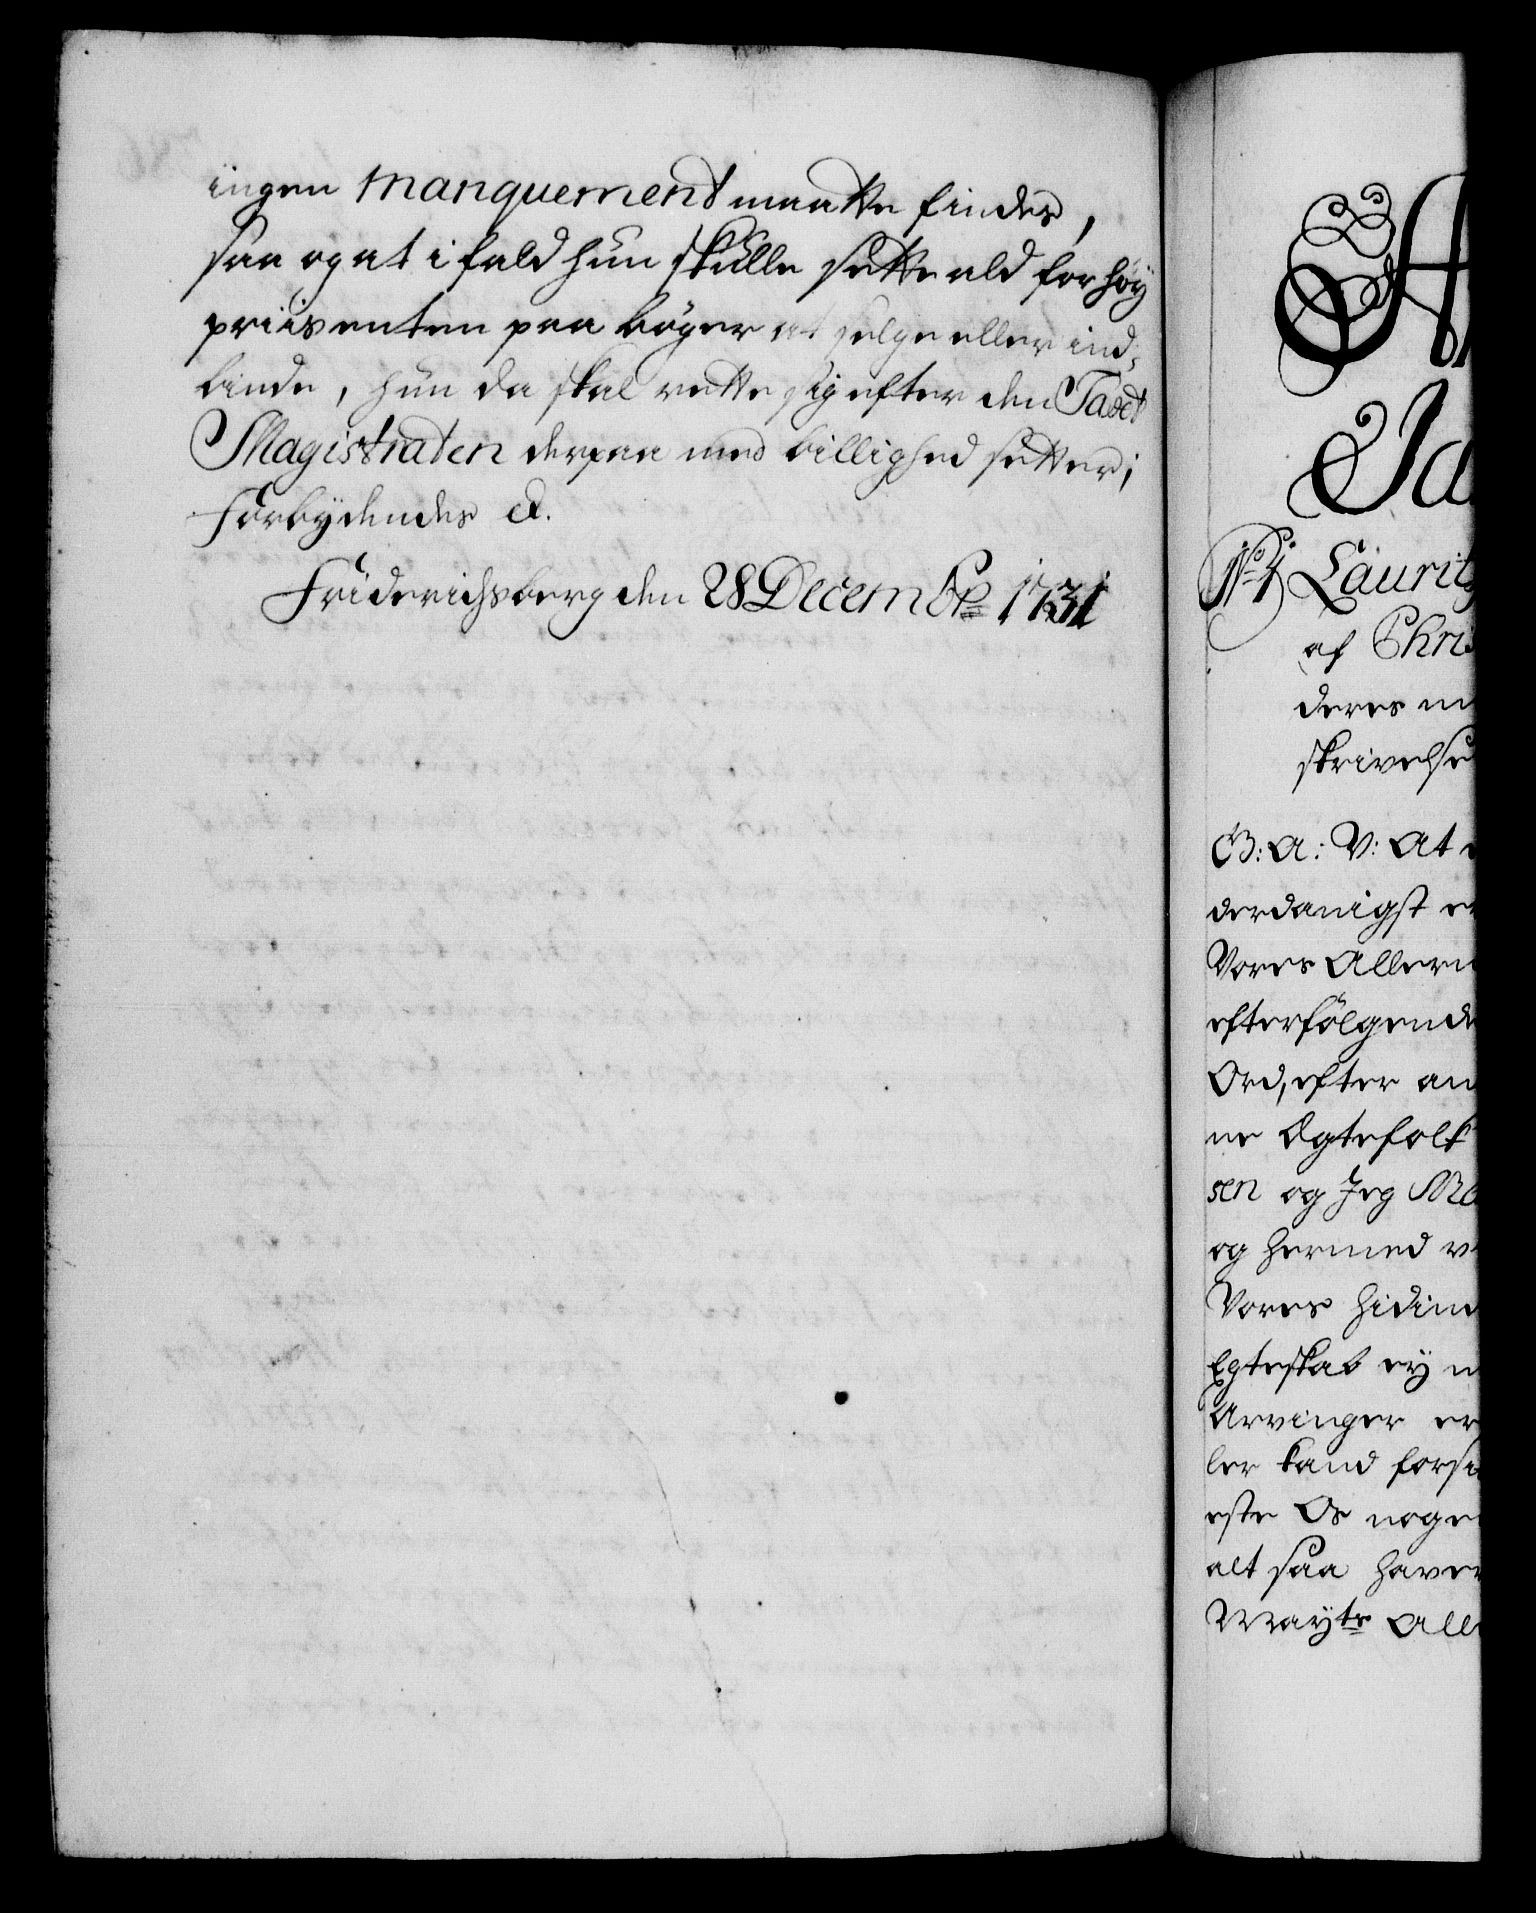 ingen manquement maatte findes,
saa og at i fald hun skulle sette ald for høy
priis enten paa bøger at selge eller ind-
binde, hun da skal rette sig efter den Taxt
Magistraten derpaa med billighed setter;
Forbydendes &.
Friderichsberg den 28 Decembr 1731
A
Ja
No 1 Lauritz
af Chris
deres
skrivelse
G: A: V: At
derdanigst
Vores Allern
efterfølgende
Ord, efter an
ne Ægtefolk
sen og Jeg
og hermed
Vores hidind
Egteskab ey
Arvinger
ler kand
este Os noge
alt saa haver
Mayts All